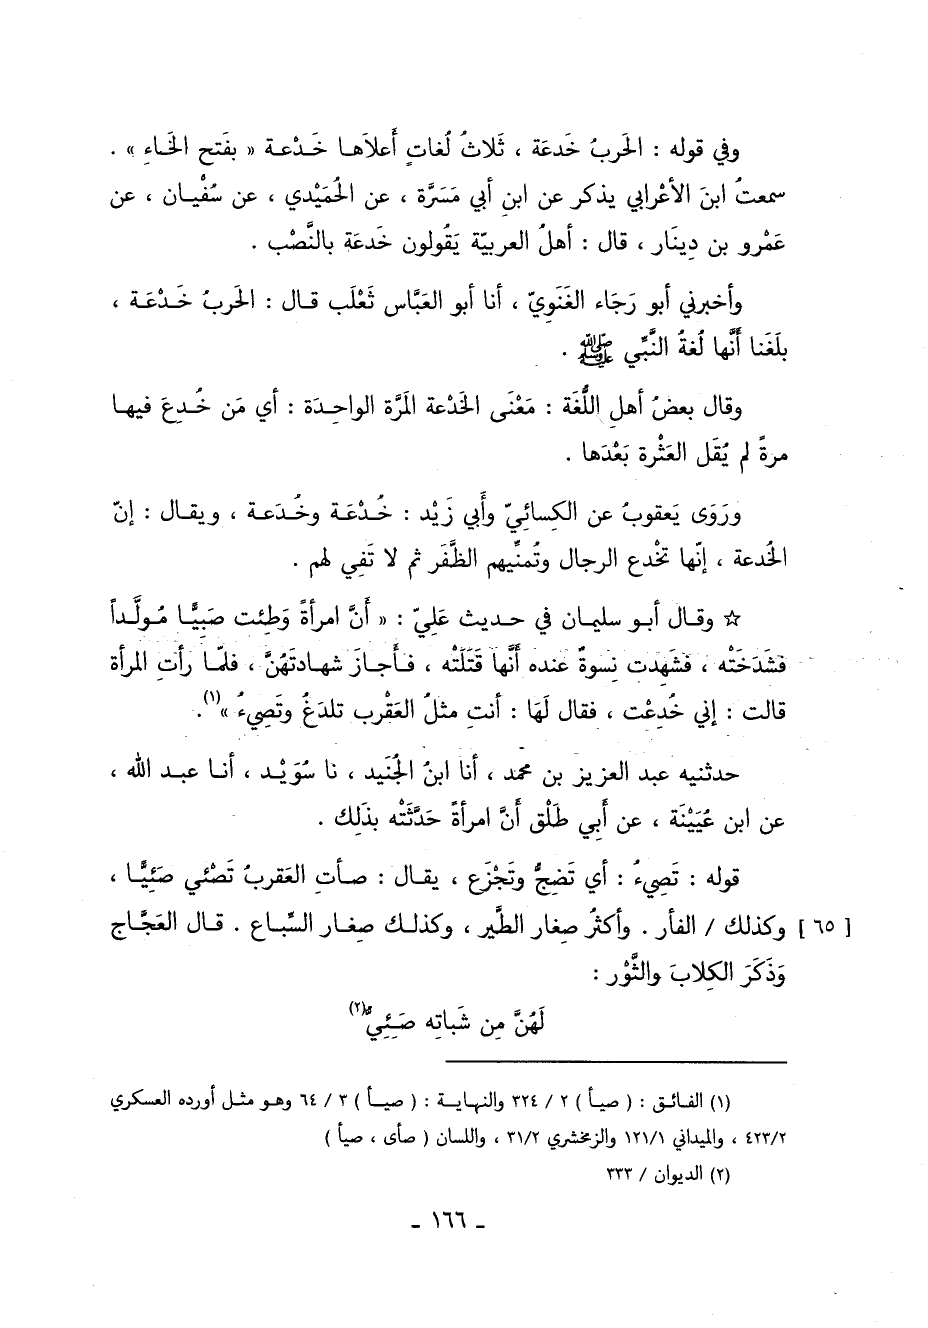 وفي قوله : الحَربُ خَدعَة ، ثَلاثُ لُغاتٍ أَعلاَهـا خَـدْعـة « بفَتح الخَـاءِ » .
سمعتُ ابنَ الأعْرابي يذكر عن ابنِ أبي مَسَرَّة ، عن الحُمَيْدي ، عن سُفْيـان ، عن
عَمْرو بن دِينَار ، قال : أهلُ العربيّة يَقُولون خَدعَة بالنَّصْب .
وأخبرني أبو رَجَاء الغَنَويّ ، أنا أبو العَبَّاس ثَعْلَب قـال : الحَربُ خَـدْعَـة ،
بلَغَنا أَنَّها لُغةُ النَّبِّي ﷺ .
وقال بعضُ أهلِ اللُّغَة : مَعْنَى الخَدْعة المَرَّة الواحِـدَة : أي مَن خُـدِعَ فيهـا
مرةً لم يُقَل العَثْرة بَعْدَها .
ورَوَى يَعقوبُ عن الكِسائِيّ وأَبي زَيْد : خُـدْعَـة وخُـدَعـة ، ويقـال : إنّ
الخُدعة ، إنّها تخْدع الرجال وتُمنِّيهم الظَّفَر ثم لا تَفِي لهم .
☆ وقـال أبـو سليمان في حـديث عَلِيّ : « أَنَّ امرأةً وَطِئت صَبِيًّـا مُـولَّـداً
فشَدَخَتْه ، فشَهِدت نِسوةٌ عنده أَنَّهـا قَتَلَتْه ، فـأجـازَ شهـادتَهُنَّ ، فلمّـا رأتِ المرأة
قالت : إني خُدِعْت ، فقال لَهَا : أنتِ مثلُ العَقْرب تلدَغُ وتَصِيءُ »(١).
حدثنيه عبد العزيز بن محمد ، أنا ابنُ الجُنَيد ، نا سُوَيْـد ، أنـا عبـد الله ،
عن ابن عُيَيْنَة ، عن أَبي طَلْق أَنَّ امرأةً حَدَّثَتْه بذَلِك .
قوله : تَصِيءُ : أي تَضِجُّ وتَجْزَع ، يقـال : صـأتِ العَقربُ تَصْئي صَئِيًّـا ،
[ ٦٥ ] وكذلك / الفأر . وأكثرُ صِغار الطَّير ، وكذلـك صِغـار السِّباع . قـال العَجَّاج
وَذَكَرَ الكِلابَ والثَّوْر :
لَهُنَّ مِن شَباتِه صَئِيٌّ(٢)
(١) الفـائـق : ( صيـأ ) ٢ / ٣٢٤ والنهـايـة : ( صيـأ ) ٣ / ٦٤ وهـو مثـل أورده العسكري
٤٢٣/٢ ، والميداني ١٢١/١ والزمخشري ٣١/٢ ، واللسان ( صأى ، صيأ )
(٢) الديوان / ٣٣٣
ـ ١٦٦ ـ